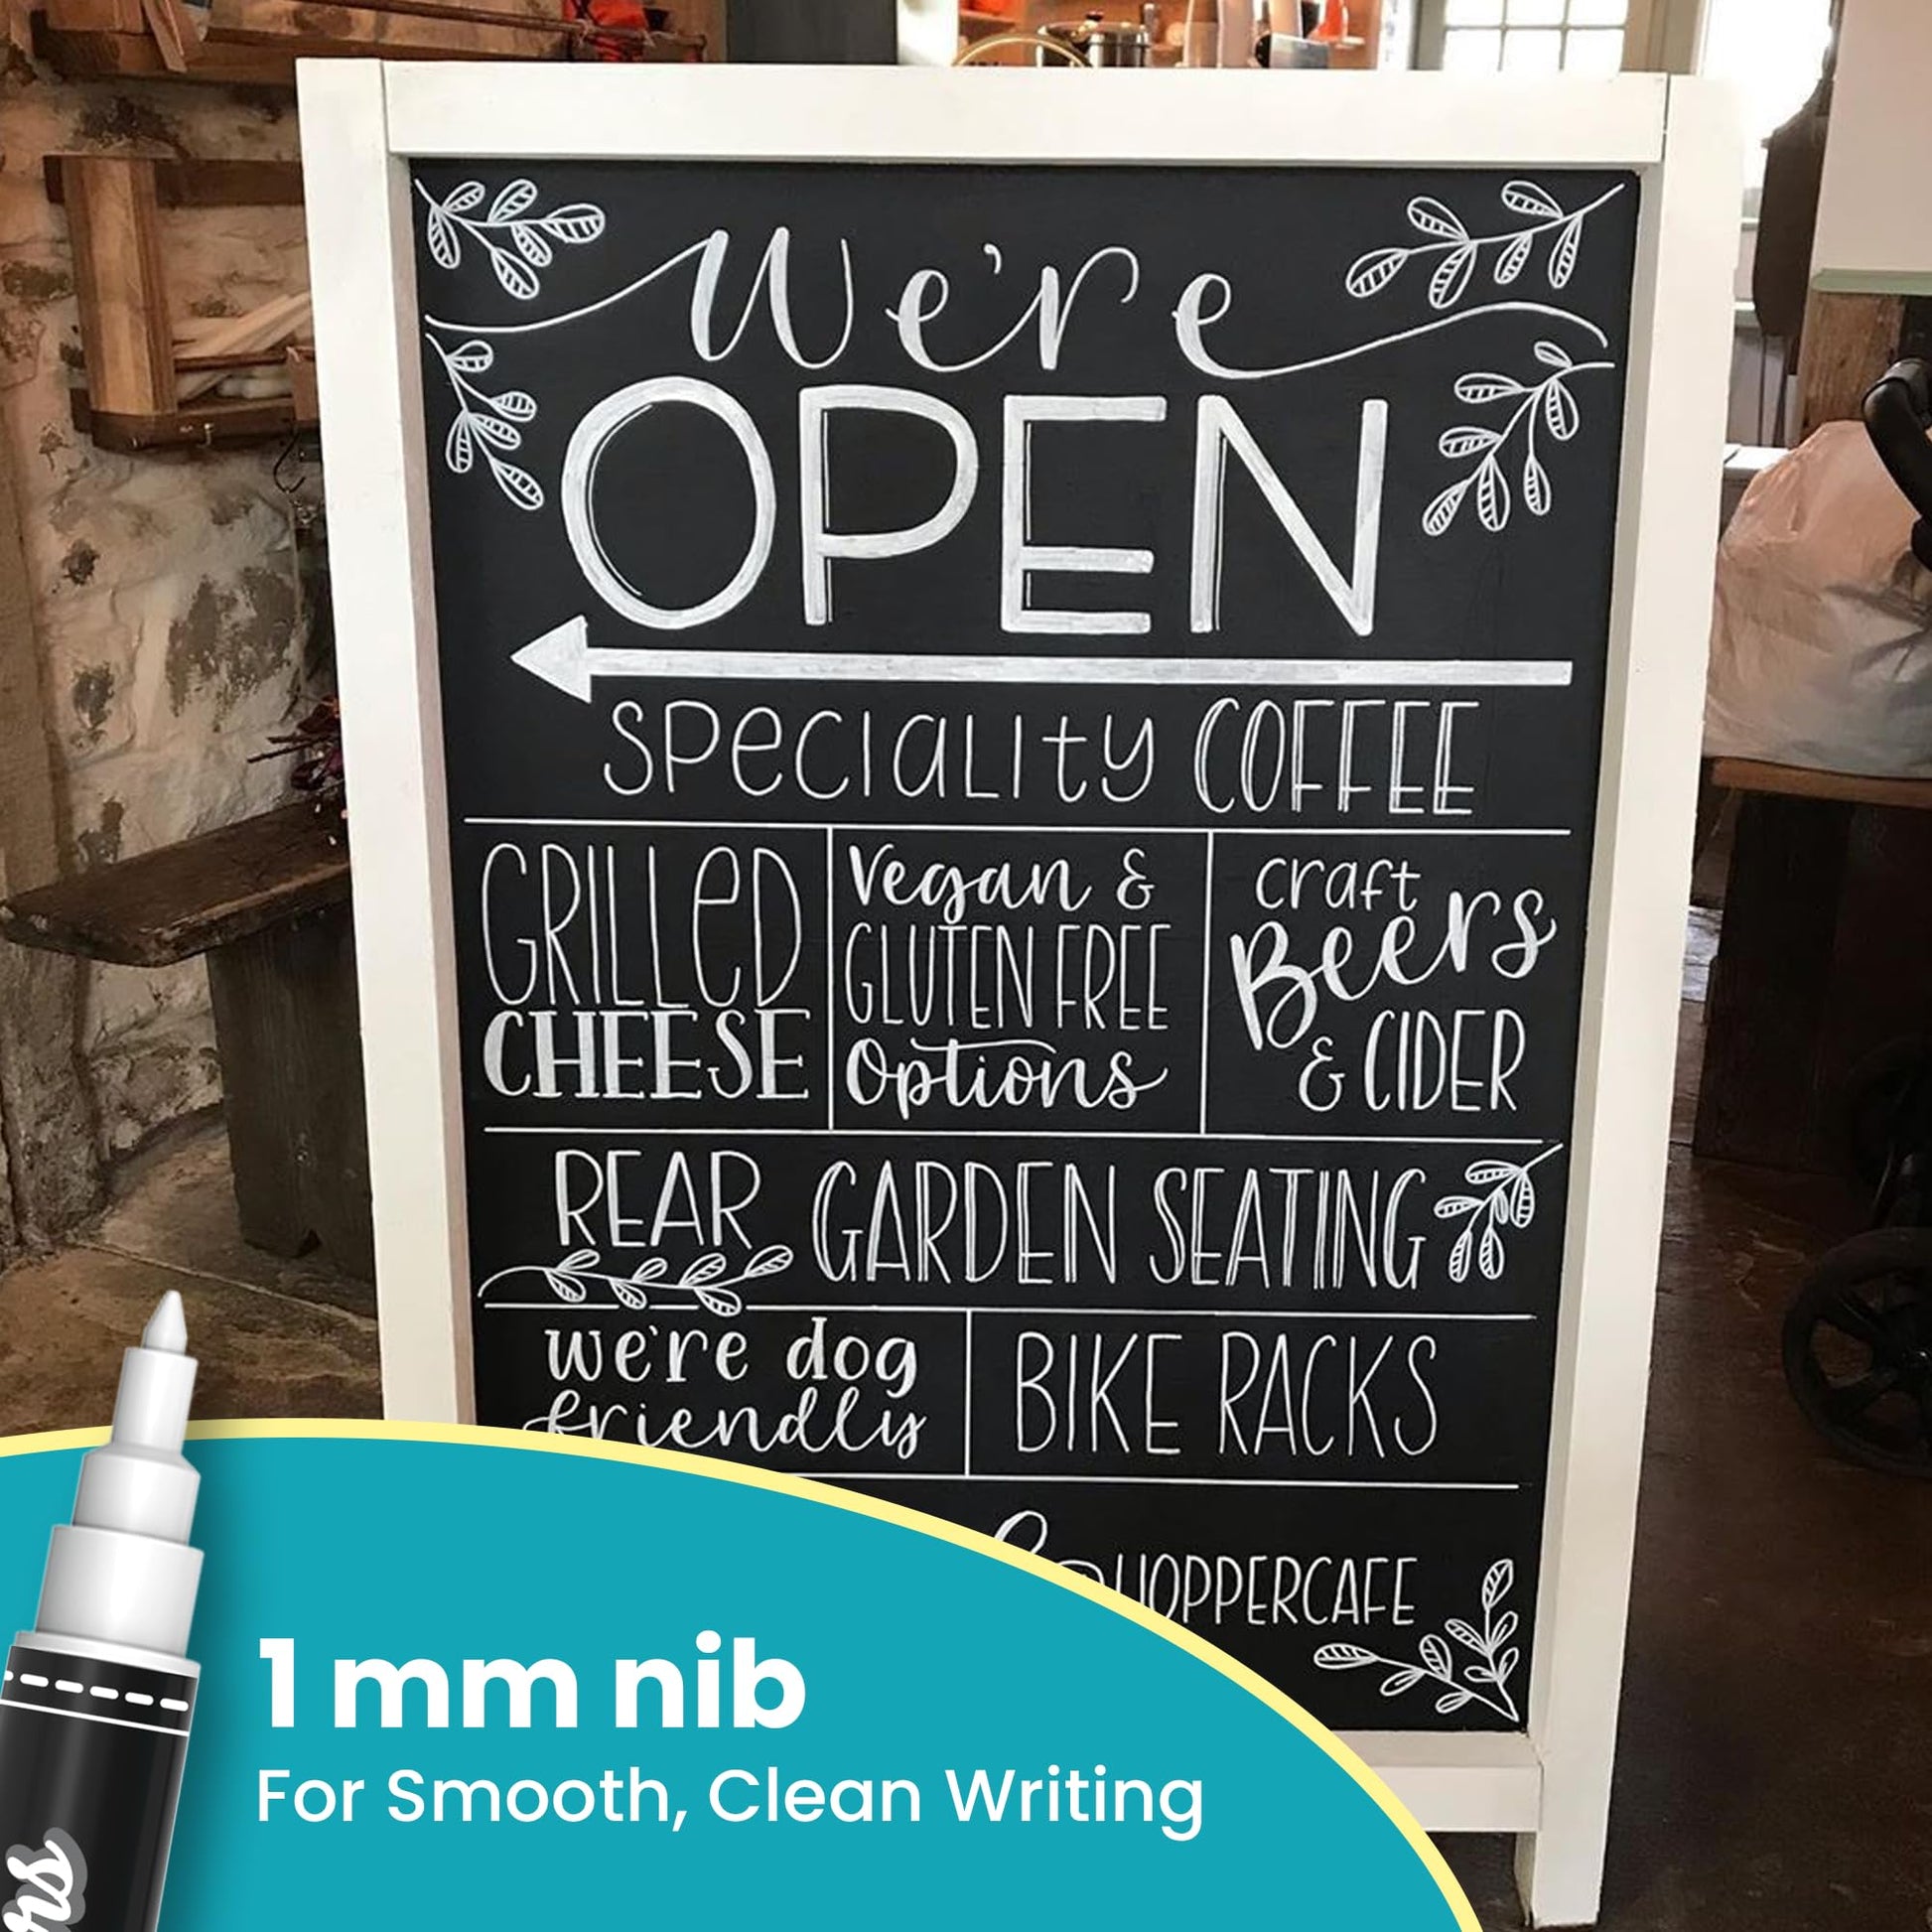 We're
OPEN
SPeCIaLIty COFFEE
GRILLeD
CHEESE
Vegan &
GLUTEN FREE
Options
craft
Beers
& CIDER
REAR GARDEN SEATING
we're dog
friendly
BIKE RACKS
HOPPERCAFE
1 mm nib
For Smooth, Clean Writing